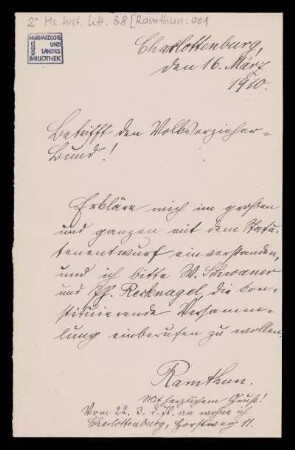 2° Ms. hist. litt. 38 [Ramthun: 001
MURHARDSCHE
UND
LANDES
BIBLIOTHEK
Charlottenburg,
den 16. März
1910.
Betrifft den Volkserzieher-
Bund!
Erkläre mich im großen
und ganzen mit dem Statu-
tenentwurf einverstanden,
und ich bitte W. Schwaner
und Pf. Recknagel, die kon-
stituierende Versamm-
lung einberufen zu wollen.
Ramthun.
Mit herzlichem Gruß!
Vom 22. 3. d. Js. an wohne ich
Charlottenburg, Horstweg 11.